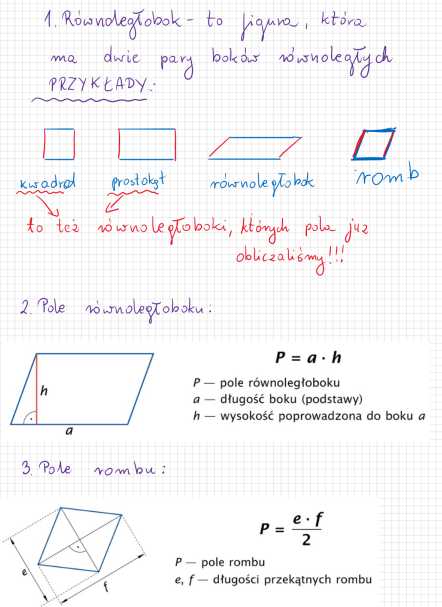 1. Równoległobok - to figura, która
ma dwie pary boków równoległych
PRZYKŁADY:
kwadrat prostokąt równoległobok romb
to też równoległoboki, których pola już
obliczaliśmy!!!
2. Pole równoległoboku:
P = a · h
P — pole równoległoboku
a — długość boku (podstawy)
h — wysokość poprowadzona do boku a
h
a
3. Pole rombu:
P = e · f / 2
P — pole rombu
e, f — długości przekątnych rombu
e
f